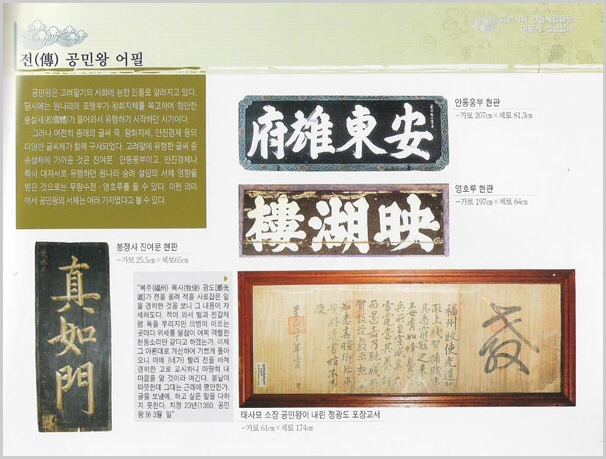 전(傳) 공민왕 어필
공민왕은 고려말기의 서화에 능한 인물로 알려지고 있다.
당시에는 원나라의 조맹부가 왕희지체를 복고하여 창안한
송설체(松雪體)가 들어와서 유행하기 시작하던 시기이다.
그러나 여전히 종래의 글씨 즉, 왕희지체, 안진경체 등의
다양한 글씨체가 함께 구사되었다. 고려말에 유행한 글씨 중
송설체에 가까운 것은 진여문·안동웅부이고, 안진경체나
특히 대자서로 유행하던 원나라 승려 설암의 서체 영향을
받은 것으로는 무량수전·영호루를 들 수 있다. 이런 의미
에서 공민왕의 서체는 여러 가지였다고 볼 수 있다.
安東雄府
안동웅부 현판
-가로 207㎝×세로 81.3㎝
映湖樓
영호루 현판
-가로 197㎝×세로 64㎝
真如門
봉정사 진여문 현판
-가로 25.5㎝×세로65㎝
"복주(福州) 목사(牧使) 광도[鄭光
道]가 전을 올려 적을 사로잡은 일
을 경하한 것을 보니 그 내용이 자
세하도다. 적이 와서 벌과 전갈처
럼 독을 뿌리지만 의병이 이르는
곳마다 위세를 떨침이 어찌 격렬한
천둥소리만 같다고 하겠는가. 이제
그 아뢴대로 개선하여 기쁘게 돌아
오니 이에 (네가) 빨리 전을 바쳐
경하한 고로 교시하니 마땅히 내
마음을 알 것이라 여긴다. 봄날이
따뜻한데 그대는 근래에 평안한가.
글을 보냄에, 하고 싶은 말을 다하
지 못한다. 지정 23년(1360, 공민
왕 9) 3월 일"
福州牧使光道
태사묘 소장 공민왕이 내린 정광도 포장교서
-가로 61㎝×세로 174㎝